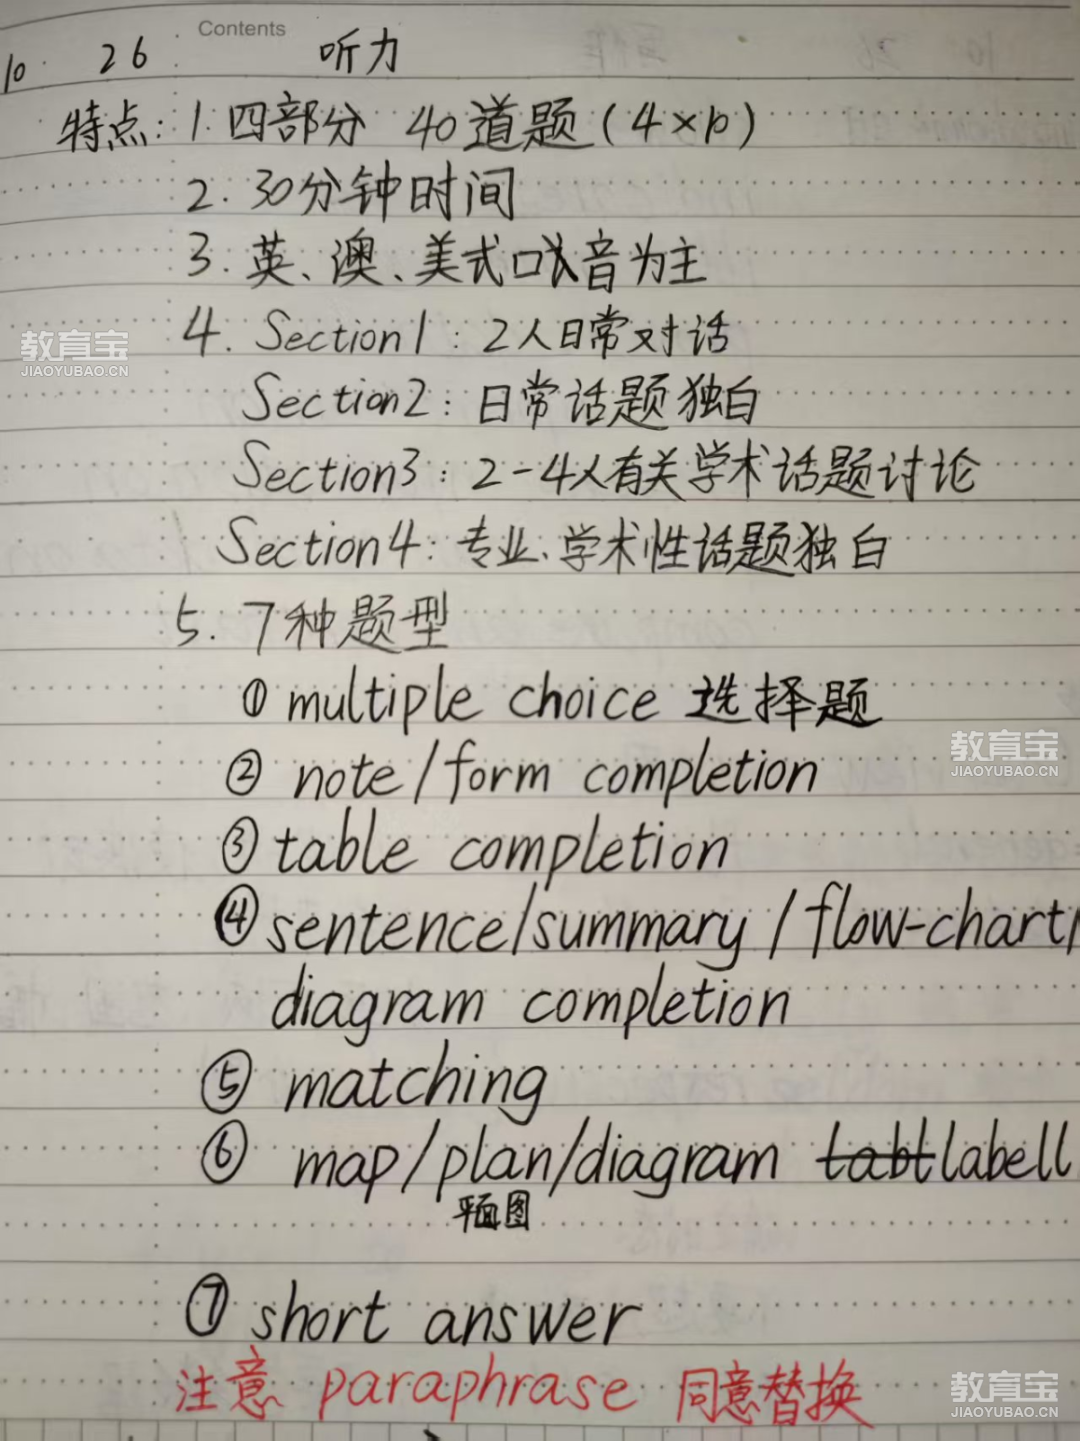 Contents
10 26 听力
特点: 1. 四部分 40道题(4×10)
2. 30分钟时间
3. 英、澳、美式口音为主
4. Section1: 2人日常对话
Section2: 日常话题独白
Section3: 2-4人有关学术话题讨论
Section4: 专业、学术性话题独白
5. 7种题型
① multiple choice 选择题
② note/form completion
③ table completion
④ sentence/summary/flow-chart/
diagram completion
⑤ matching
⑥ map/plan/diagram labell
平面图
⑦ short answer
注意 paraphrase 同意替换
教育宝
JIAOYUBAO.CN
教育宝
JIAOYUBAO.CN
教育宝
JIAOYUBAO.CN